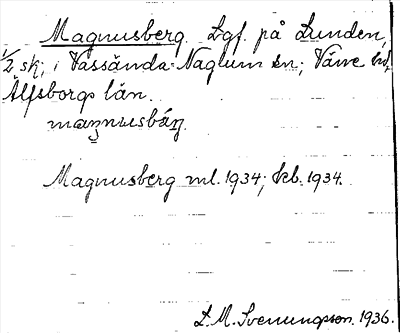 Magnusberg. Lgf. på Lunden,
1/2 sk; i Vassända-Naglum sn; Väne hd,
Älfsborgs län.
Magnusberg ml. 1934; kb. 1934.
L. M. Svenungsson. 1936.